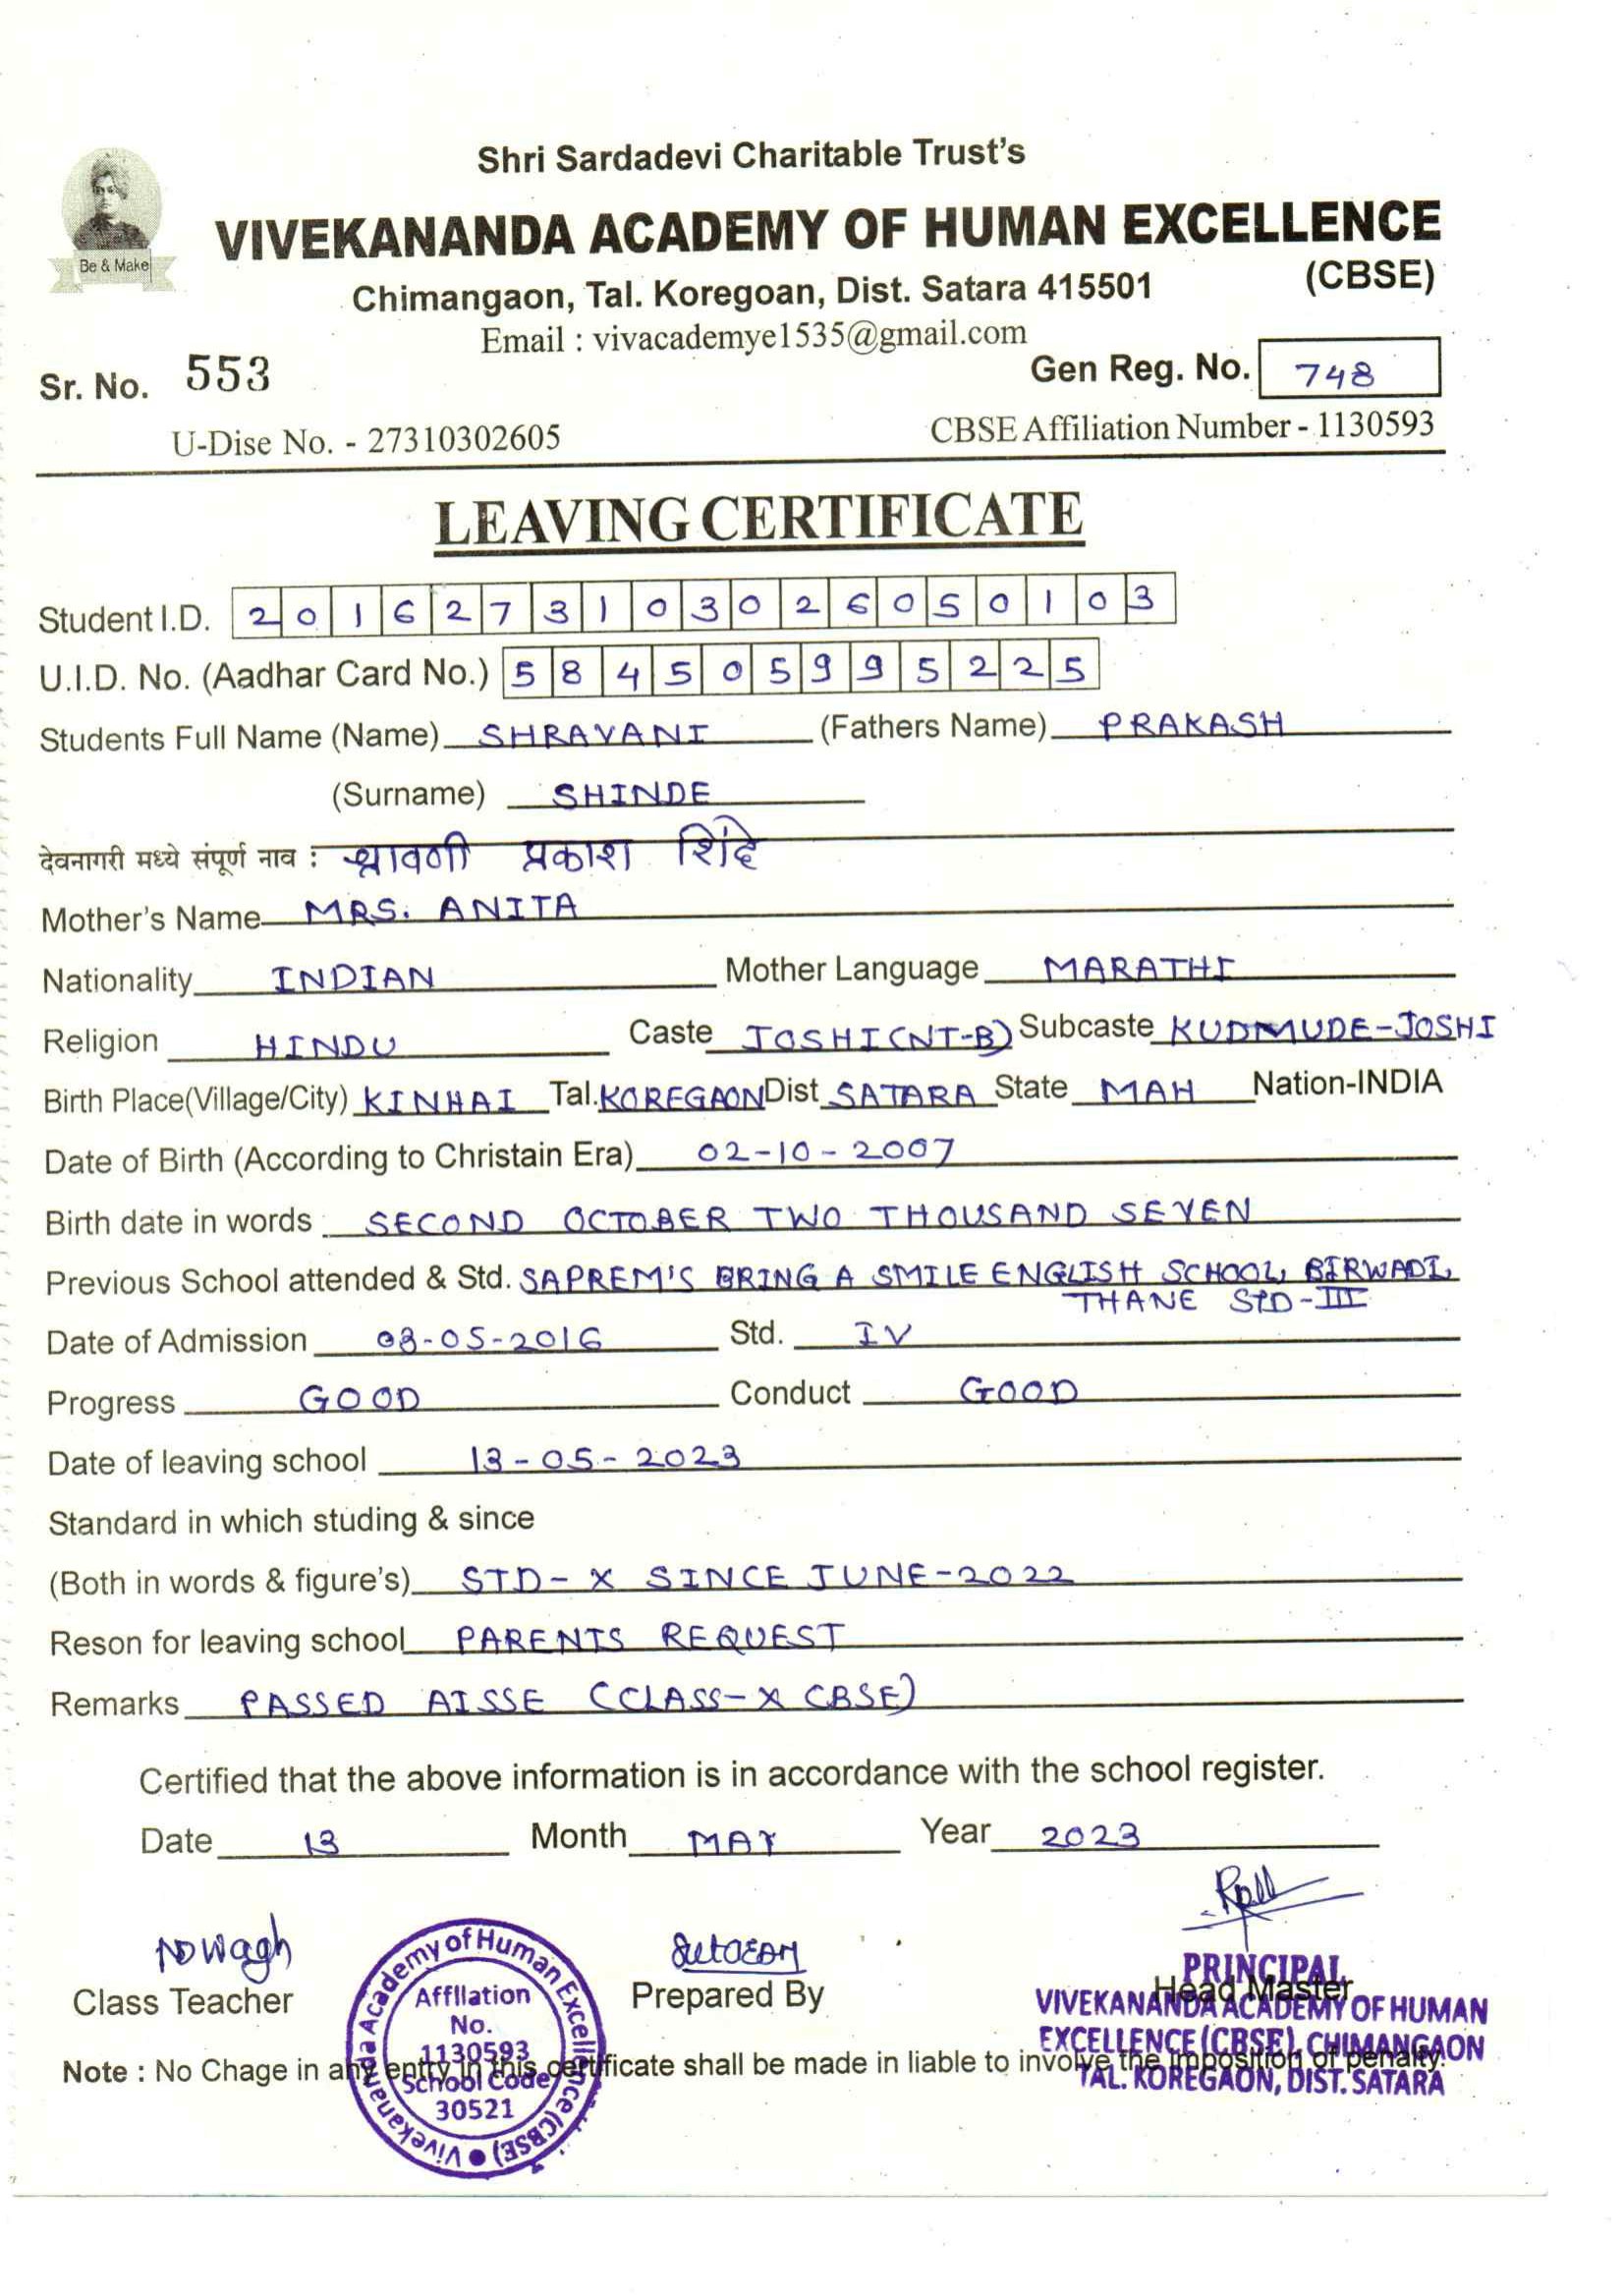 Shri Sardadevi Charitable Trust's
Be & Make
VIVEKANANDA ACADEMY OF HUMAN EXCELLENCE
(CBSE)
Chimangaon, Tal. Koregoan, Dist. Satara 415501
Email : vivacademye1535@gmail.com
Sr. No. 553 Gen Reg. No. 748
U-Dise No. - 27310302605 CBSE Affiliation Number - 1130593
LEAVING CERTIFICATE
Student I.D. 2016273103026050103
U.I.D. No. (Aadhar Card No.) 584505995225
Students Full Name (Name) SHRAVANI (Fathers Name) PRAKASH
(Surname) SHINDE
देवनागरी मध्ये संपूर्ण नाव : श्रावणी प्रकाश शिंदे
Mother's Name MRS. ANITA
Nationality INDIAN Mother Language MARATHI
Religion HINDU Caste JOSHI (NT-B) Subcaste KUDMUDE-JOSHI
Birth Place(Village/City) KINHAI Tal. KOREGAON Dist SATARA State MAH Nation-INDIA
Date of Birth (According to Christain Era) 02-10-2007
Birth date in words SECOND OCTOBER TWO THOUSAND SEVEN
Previous School attended & Std. SAPREM'S BRING A SMILE ENGLISH SCHOOL, BIRWADI,
THANE STD-III
Date of Admission 03-05-2016 Std. IV
Progress GOOD Conduct GOOD
Date of leaving school 13-05-2023
Standard in which studing & since
(Both in words & figure's) STD-X SINCE JUNE-2022
Reson for leaving school PARENTS REQUEST
Remarks PASSED AISSE (CLASS-X CBSE)
Certified that the above information is in accordance with the school register.
Date 13 Month MAY Year 2023
NDWagh
Class Teacher Prepared By Head Master
PRINCIPAL
VIVEKANANDA ACADEMY OF HUMAN
EXCELLENCE (CBSE), CHIMANGAON
TAL. KOREGAON, DIST. SATARA
Note : No Chage in any entry in this certificate shall be made in liable to involve the imposition of penalty.
Vivekananda Academy of Human Excellence (CBSE)
Affiliation
No.
1130593
School Code
30521